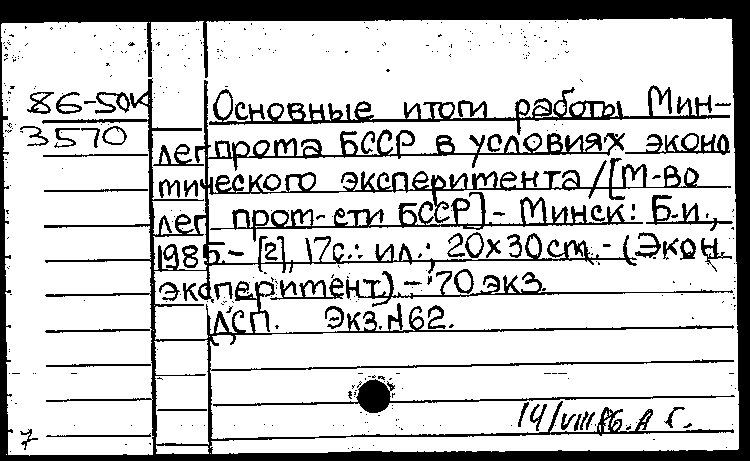 86-50к
3570
Основные итоги работы Мин-
легпрома БССР в условиях эконо
мического эксперимента/[М-во
лег пром-сти БССР].- Минск: Б.и.,
1985.- [2], 17с.: ил.; 20х30см.- (Экон.
эксперимент).- 70 экз.
ДСП. Экз.№62.
14/VIII 86. А Г.
7